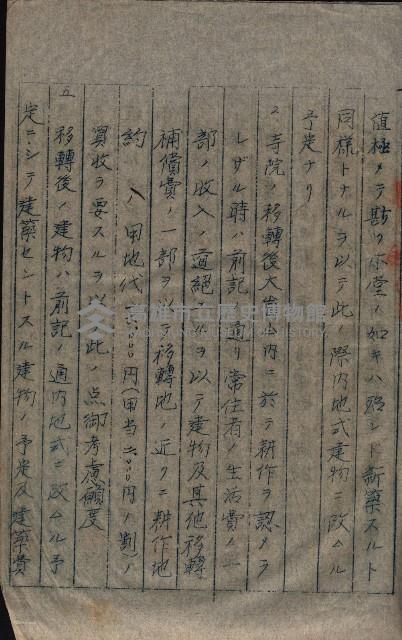 値極メテ斯ク本堂ノ如キハ殆ンド新築スルト
同様トナルヲ以テ此ノ際内地式建物ニ改ムル
予定ナリ
2 寺院ノ移轉後大 山内ニ於テ耕作ヲ認メラ
レザル時ハ前記ノ通リ常住者ノ生活費ノ一
部ノ収入ノ道絶ユルヲ以テ建物及其他移轉
補償費ノ一部ヲ以テ移轉地ノ近クニ耕作地
約 八甲地代 000円(甲当二〇〇〇円ノ割)ノ
買收ヲ要スルヲ以 此ノ点御考慮願度
五
移轉後ノ建物ハ前記ノ通内地式ニ改ムル予
定ニシテ建築セントスル建物ノ予定及建築費
高雄市立歷史博物館